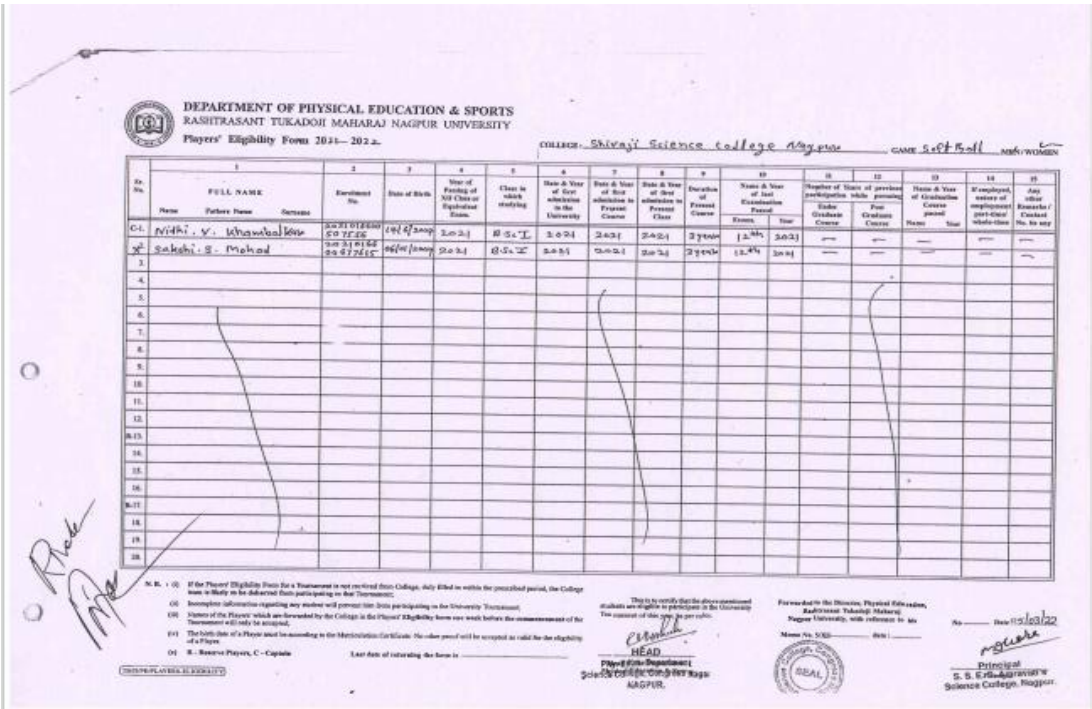 DEPARTMENT OF PHYSICAL EDUCATION & SPORTS
RASHTRASANT TUKADOJI MAHARAJ NAGPUR UNIVERSITY
Players' Eligibility Form 2021-2022
COLLEGE- Shivaji Science College Nagpur GAME Soft Ball MEN/WOMEN
1 2 3 4 5 6 7 8 9 10 11 12 13 14 15
Sr. No.
FULL NAME
Name Fathers Name Surname
Enrolment No.
Date of Birth
Year of Passing of XII Class or Equivalent Exam.
Class in which studying
Date & Year of first admission in the University
Date & Year of first admission to Present Course
Date & Year of first admission to Present Class
Duration of Present Course
Name & Year of last Examination Passed
Exam. Year
Number of Years of previous participation while pursuing
Under Graduate Course
Post Graduate Course
Name & Year of Graduation Course passed
Name Year
If employed, nature of employment part-time/ whole-time
Any other Remarks / Contact No. to any
C-1. Nidhi. V. 2021 B.Sc I 2021 2021 2021 3 year 12th 2021 - - - - -
2 Sakshi. S. Mohod 2021 B.Sc I 2021 2021 2021 3 year 12th 2021 - - - - -
3.
4.
5.
6.
7.
8.
9.
10.
11.
12.
R-13.
14.
15.
16.
R-17.
18.
19.
20.
N. B. : (i) If the Players' Eligibility Form for a Tournament is not received from College, duly filled in within the prescribed period, the College
team is likely to be debarred from participating in that Tournament.
(ii) Incomplete information regarding any student will prevent him from participating in the University Tournament.
(iii) Names of the Players' which are forwarded by the College in the Players' Eligibility form one week before the commencement of the
Tournament will only be accepted.
(iv) The birth date of a Player must be according to the Matriculation Certificate. No other proof will be accepted as valid for the eligibility
of a Player.
(v) R - Reserve Players, C - Captain Last date of returning the form is
This is to certify that the above mentioned
students are eligible to participate in the University
HEAD
Science College, Congress Nagar
NAGPUR.
Forwarded to the Director, Physical Education,
Rashtrasant Tukadoji Maharaj
Nagpur University, with reference to his No. Date 05/03/22
Memo No. date
SEAL
Principal
Science College, Nagpur.